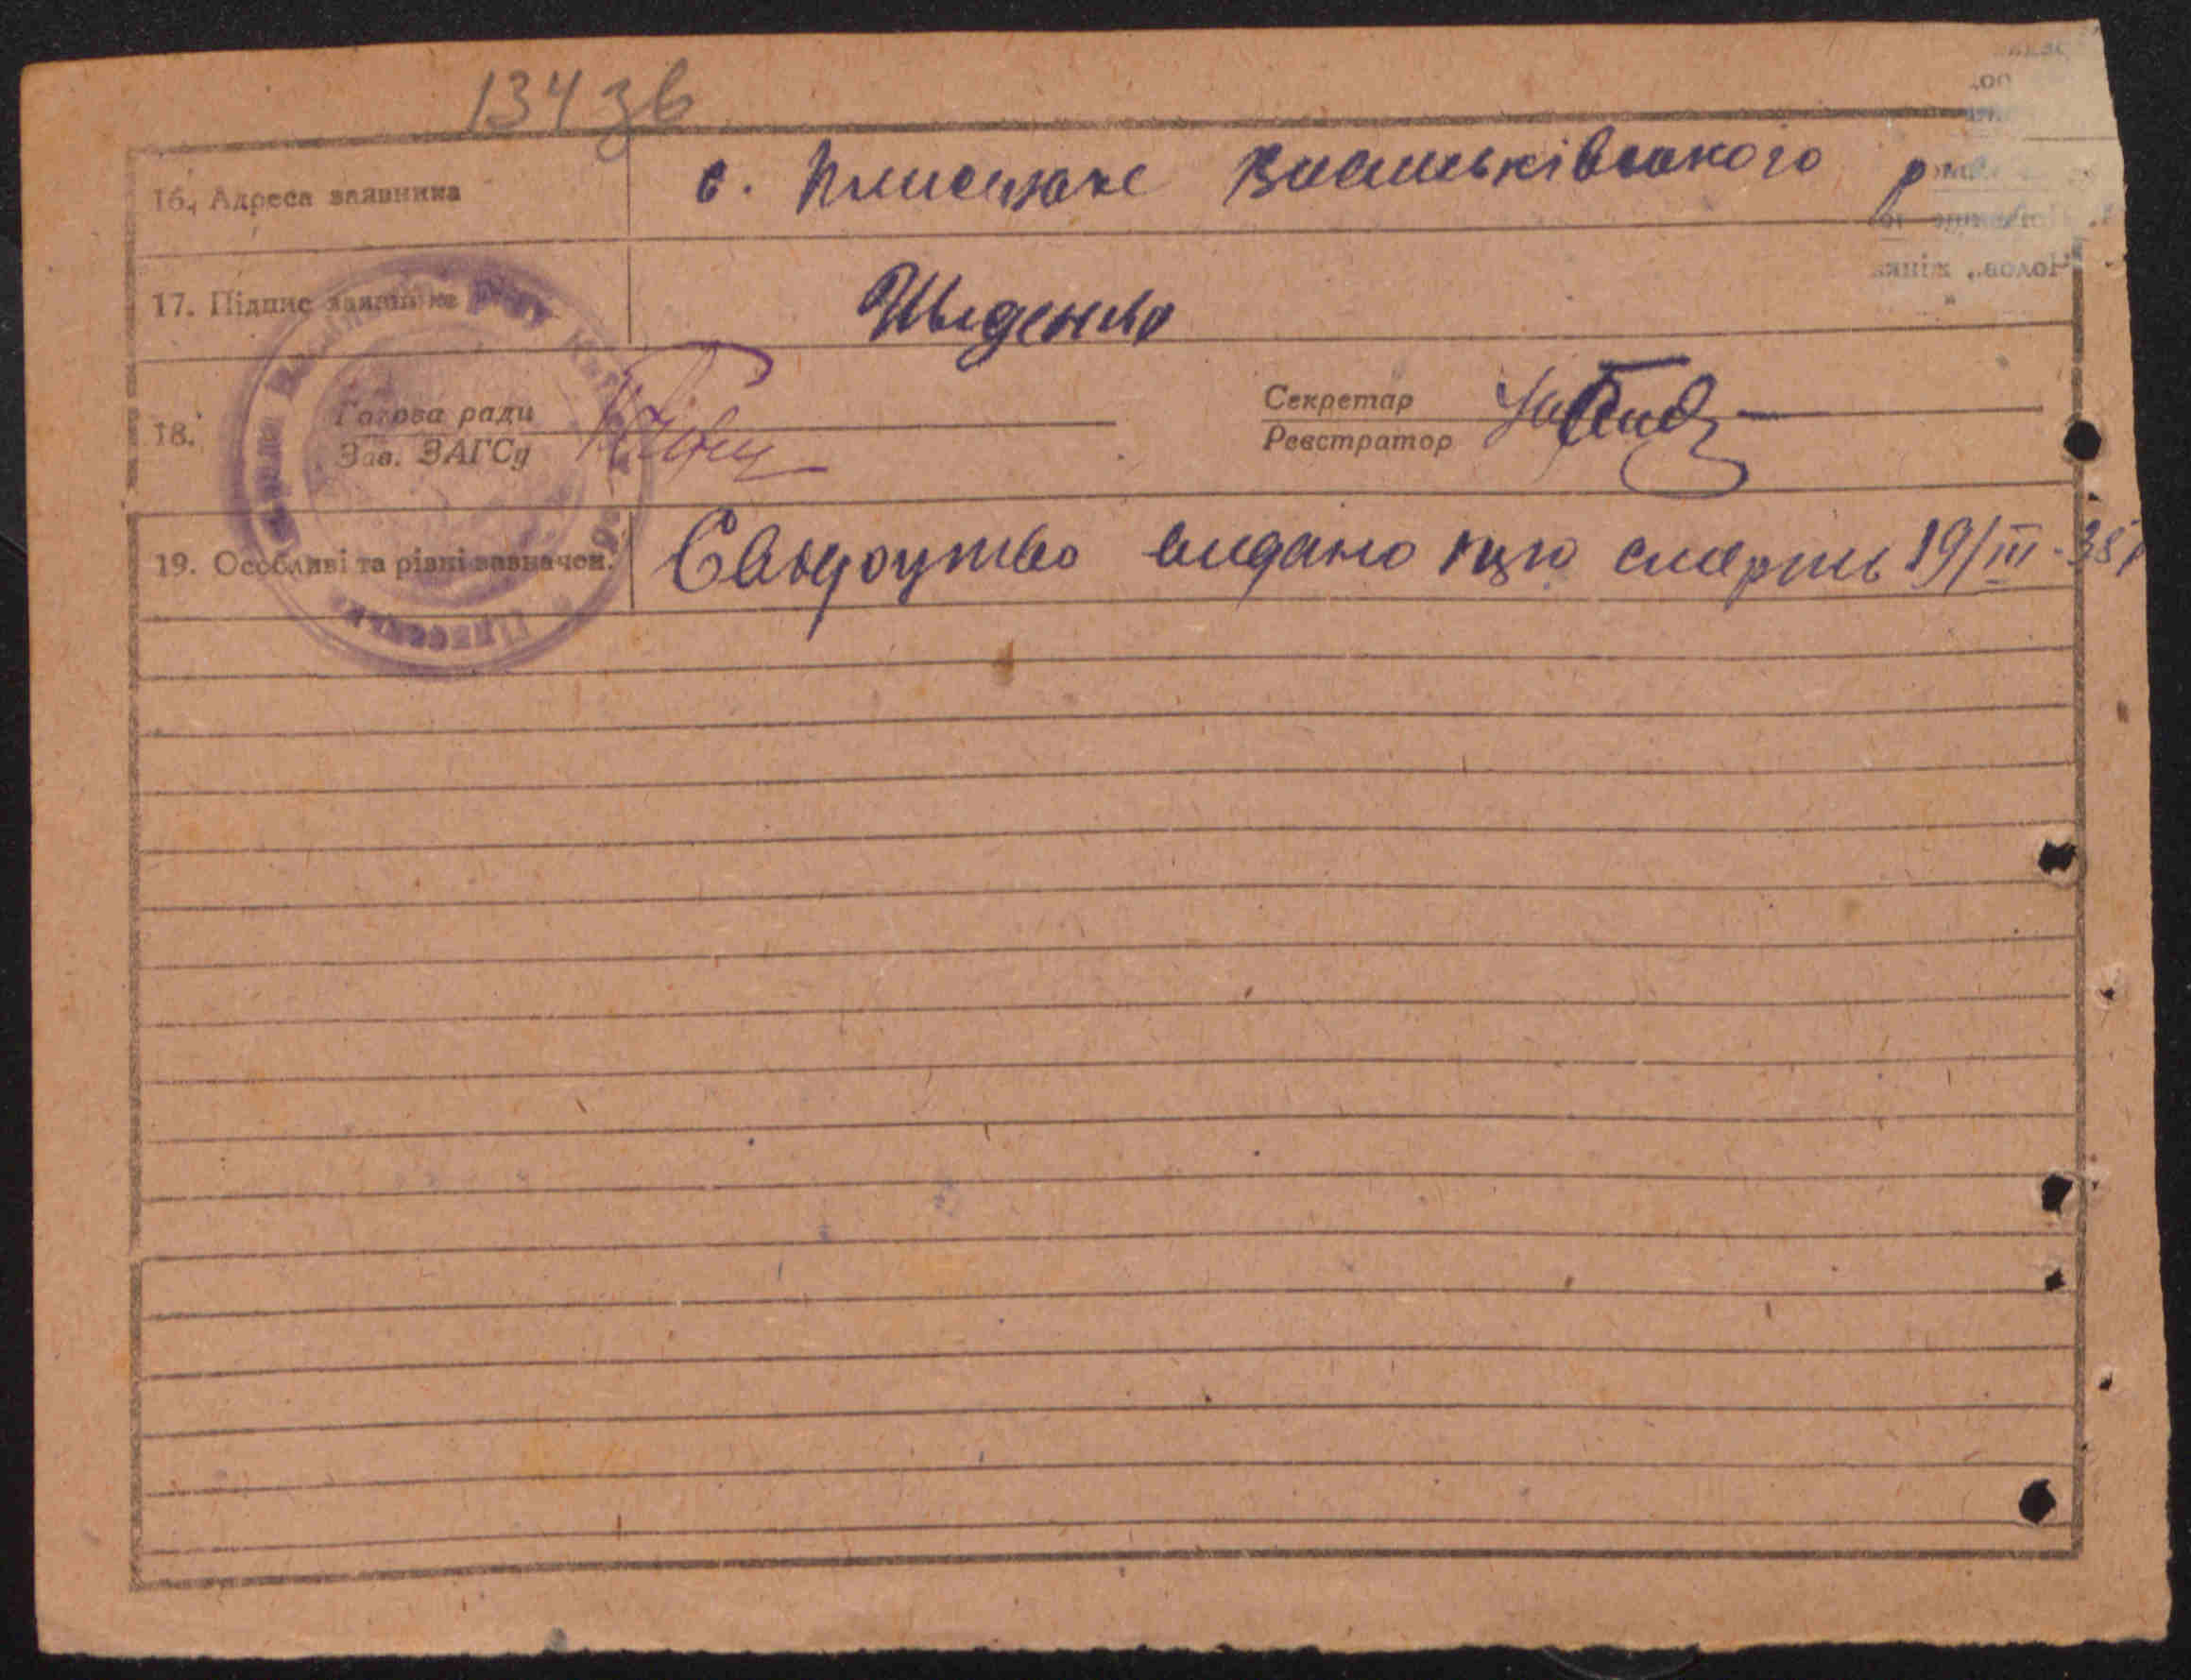 134 зв
16. Адреса заявника с. Плисецьке Васильківського р
17. Підпис заявника
18. Голова ради Секретар
Зав. ЗАГСу Реєстратор
19. Особливі та різні зазначен. Свідоцтво видано про смерть 19/III-38р